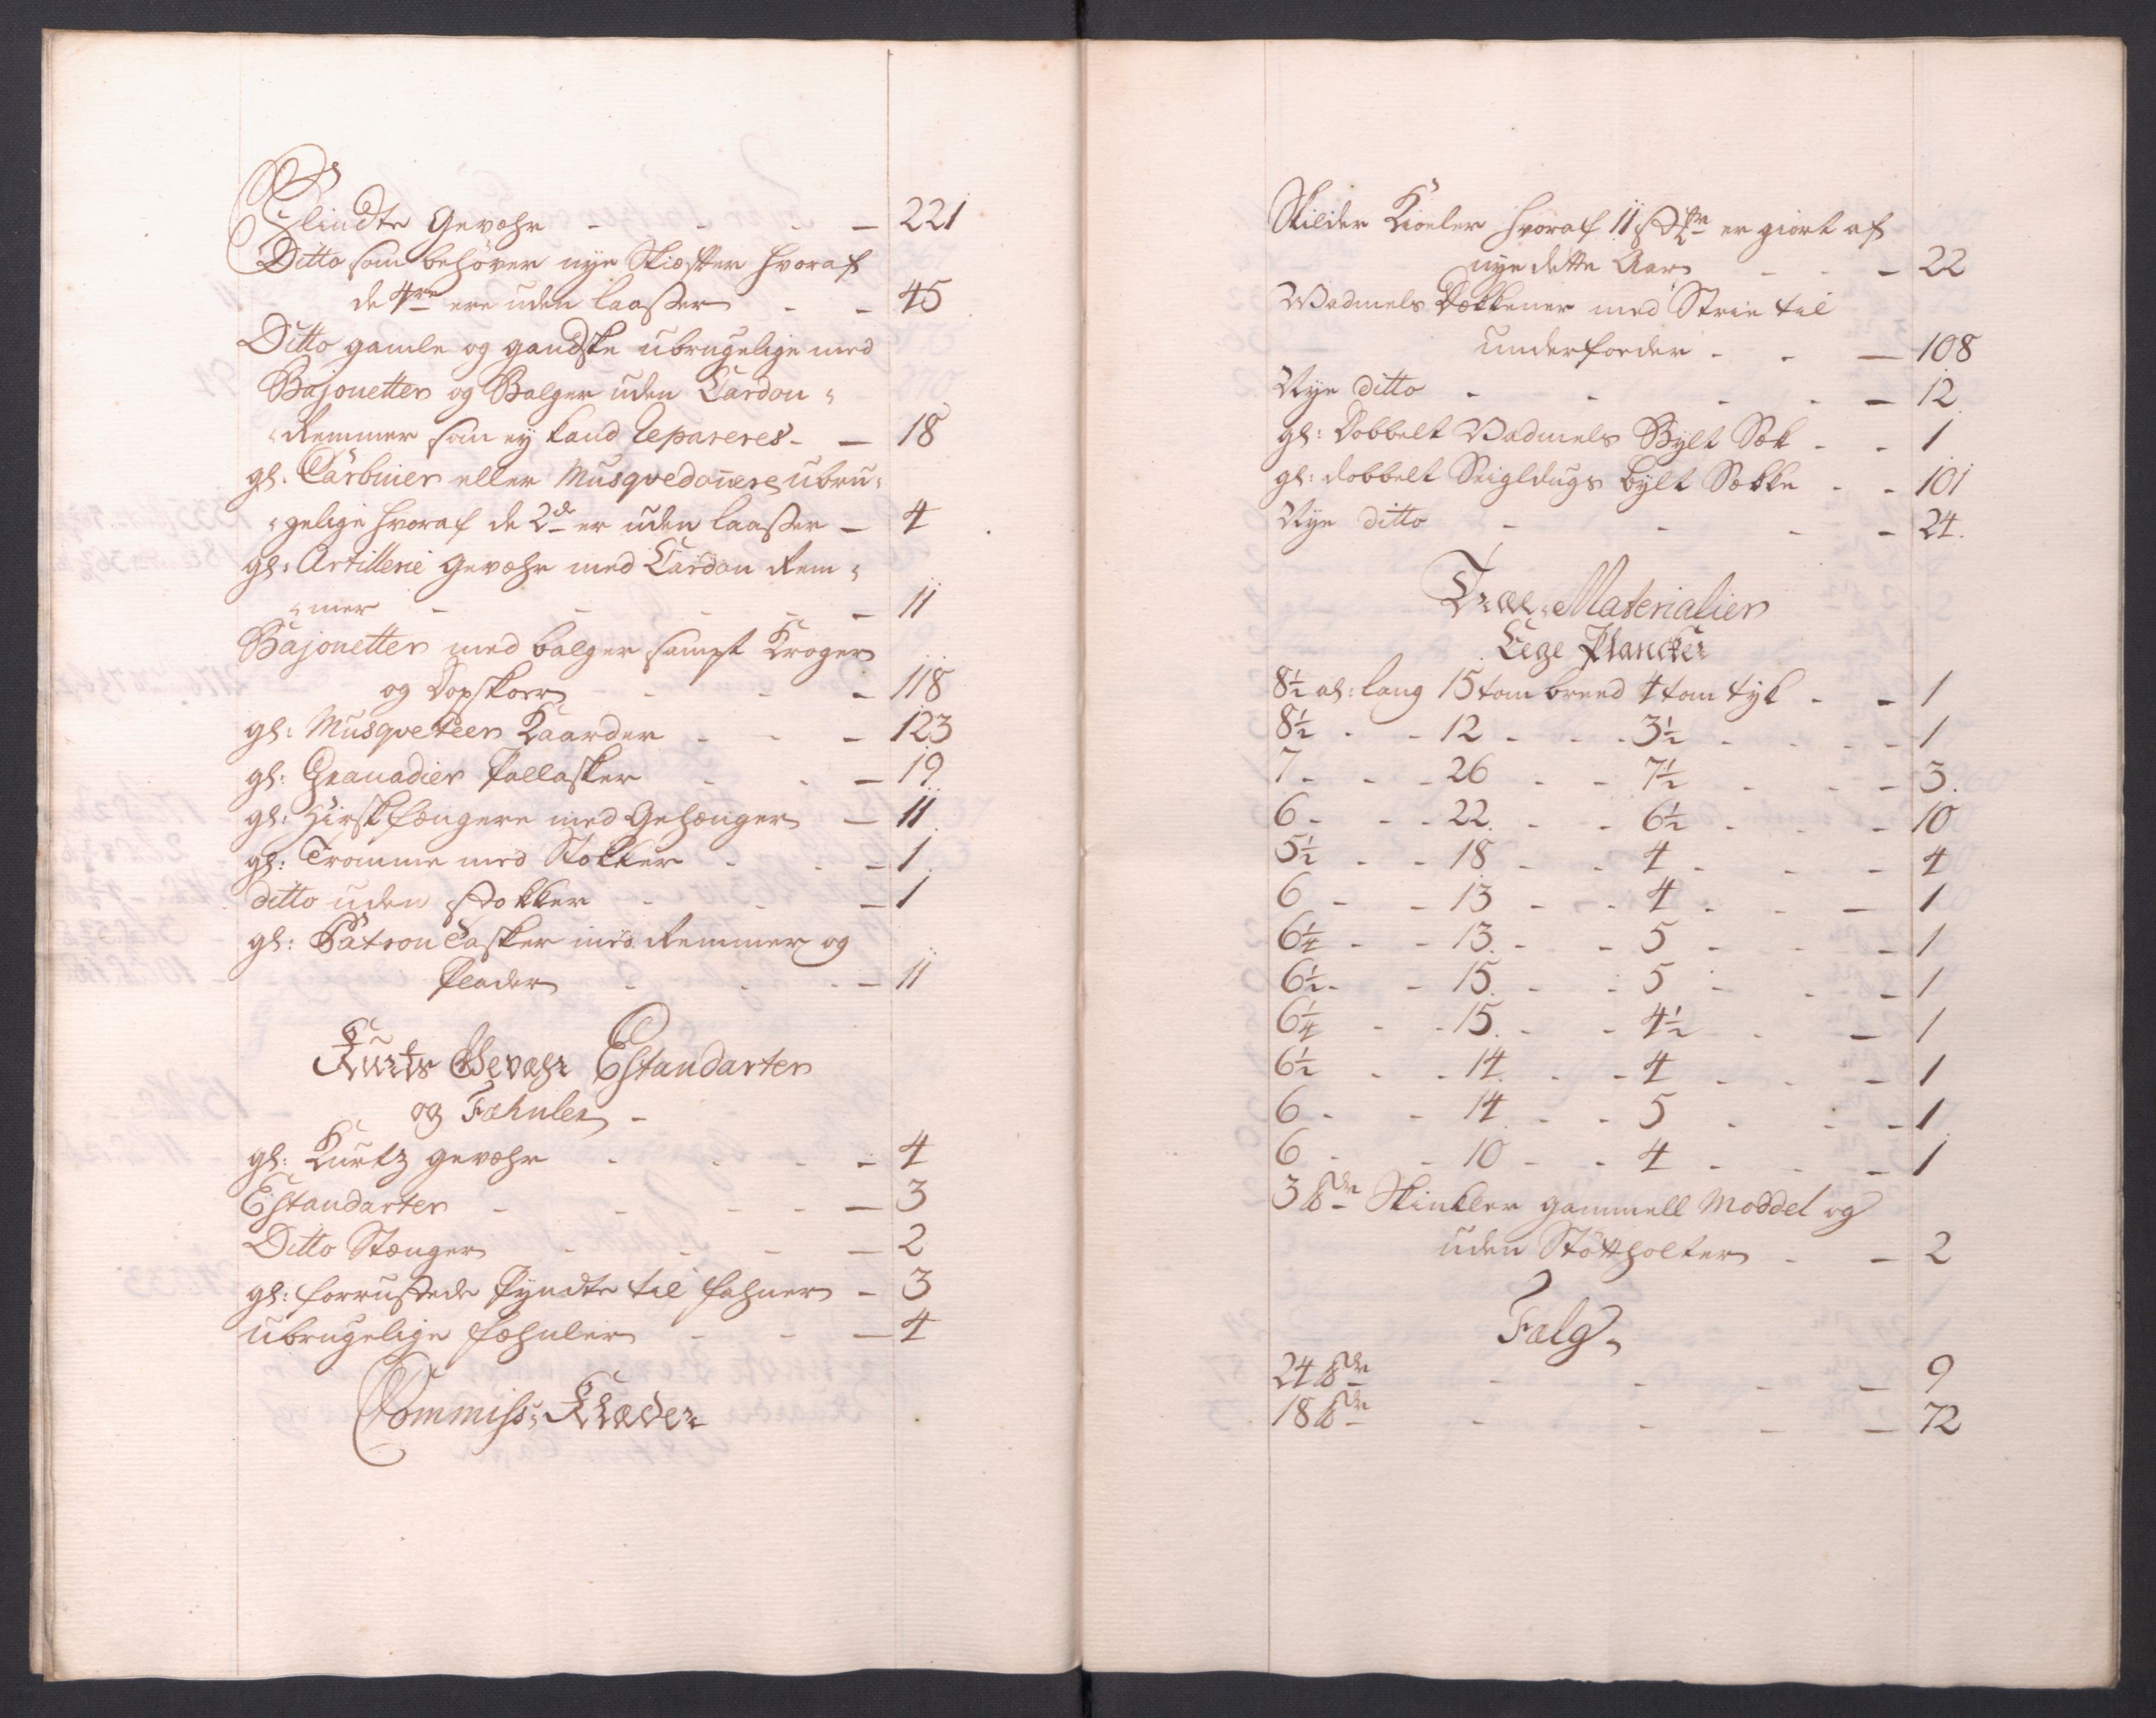 Flindte Gevæhr - - - - 221
Ditto som behøver nye Skiæffter hvoraf
de 4re ere uden laasser - - 45
Ditto gamle og gandske ubrugelige med
Bajonetter og Balger uden Cardon-
Remmer som ey kand Repareres - - 18
gl: Carbiner eller Musqvedonere ubru-
gelige hvoraf de 2de er uden laasser - 4
gl: Artillerie Gevæhr med Cardon Rem-
mer - - - - 11
Bajonetter med balger sampt Kroger
og Dopskoer - - - 118
gl: Musqveteer Kaarder - - - 123
gl: Granadier Pallasker - - - 19
gl: Hirskfængere med Gehænger - 11
gl: Tromme med Stokker - - - 1
ditto uden stokker - - - 1
gl: Patron Tasker med Remmer og
Plader - - - - 11
Kurts Gevæhr Estandarter
og Fæhnler -
gl: Kurtz gevæhr - - - - 4
Estandarter - - - - - 3
Ditto Stænger - - - - 2
gl: forrustede Pyndte til fahner - 3
ubrugelige fæhnler - - - 4
Commiss: Klæder
Skilder Kioeler hvoraf 11 stkr er giort af
nye dette Aar - - - 22
Wadmels Dækkener med Strie til
underfoeder - - - 108
Nye ditto - - - - - 12
gl: Dobbelt Wadmels Bylt Sæk - - 1
gl: dobbelt Seigldugs bylt Sække - - 101
Nye ditto - - - - 24.
Træe-Materialier
Eege Plancker
8½ al: lang 15 tom breed 4 tom tyk - - 1
8½ - - 12 - - - 3½ - - - - 1
7 - - - 26 - - 7½ - - - 3.
6 - - - 22 - - 6½ - - - 10
5½ - - 18 - - 4 - - - 4
6 - - 13 - - 4 - - - 1
6¼ - - 13 - - 5 - - - 1
6½ - - 15 - - 5 - - - 1
6¼ - - 15 - - 4½ - - 1
6½ - - 14 - - 4 - - - 1
6 - - 14 - - 5 - - - 1
6 - - 10 - - 4 - - - 1
3 ℔de Skinkler gammell Moddel og
uden Støttholter - - 2
Fælg
24 ℔de - - - - 9
18 ℔de - - - - 72